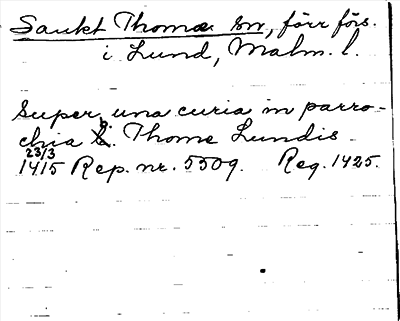 Sankt Thomæ sn, förr förs.
i Lund, Malm. l.
Super una curia in parro-
chia S. Thome Lundis
23/3
1415 Rep. nr. 5509. Reg. 1425.